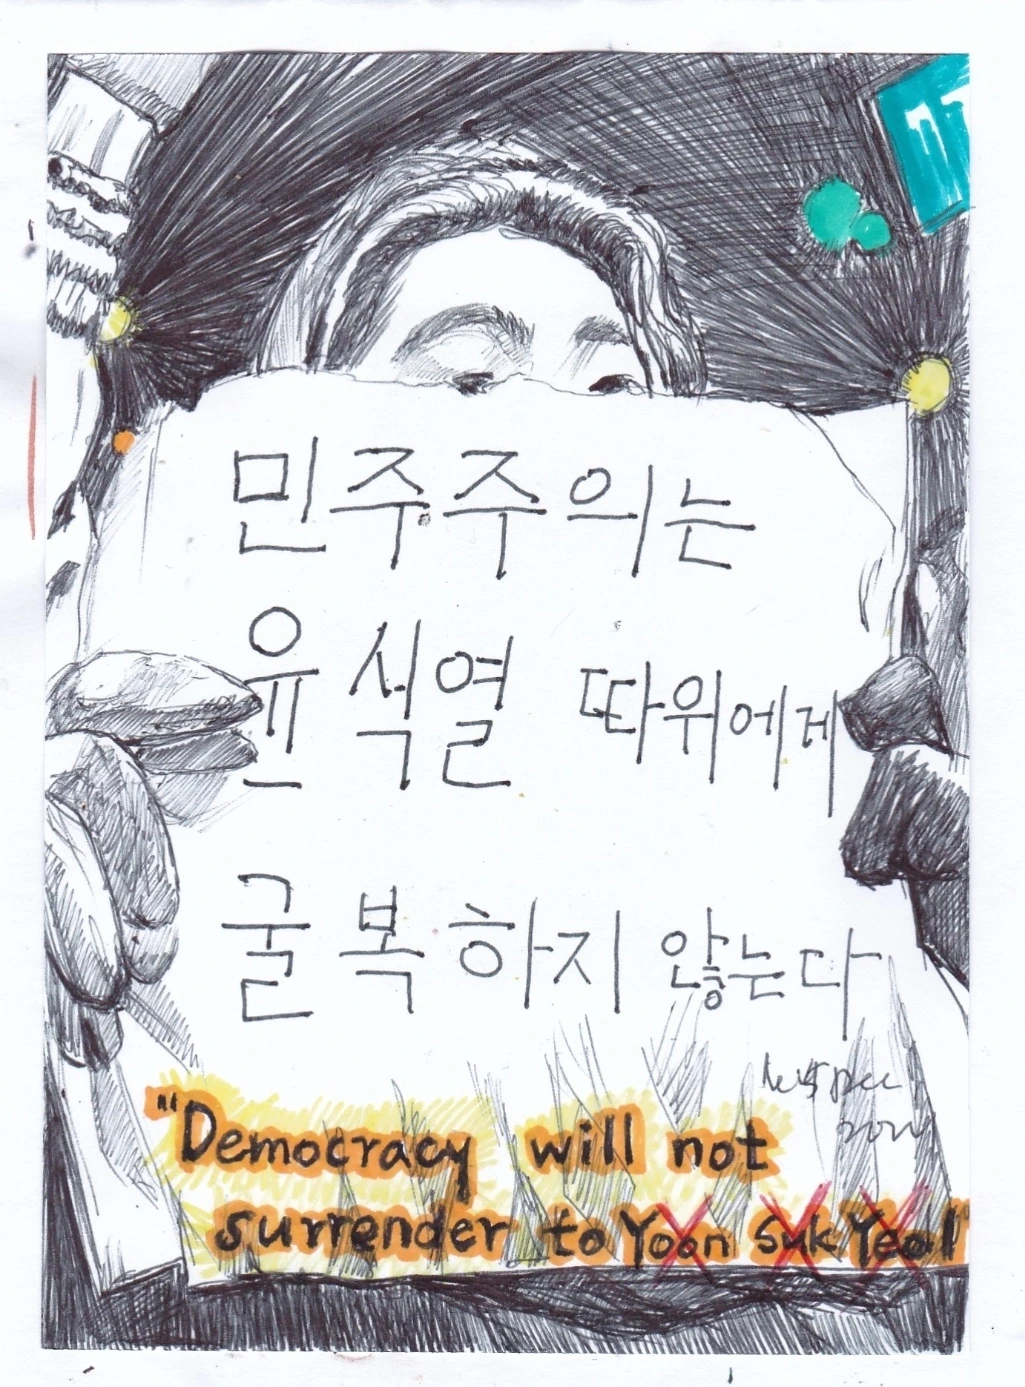 민주주의는
윤석열 따위에게
굴복하지 않는다
"Democracy will not
surrender to Yoon Suk Yeol"